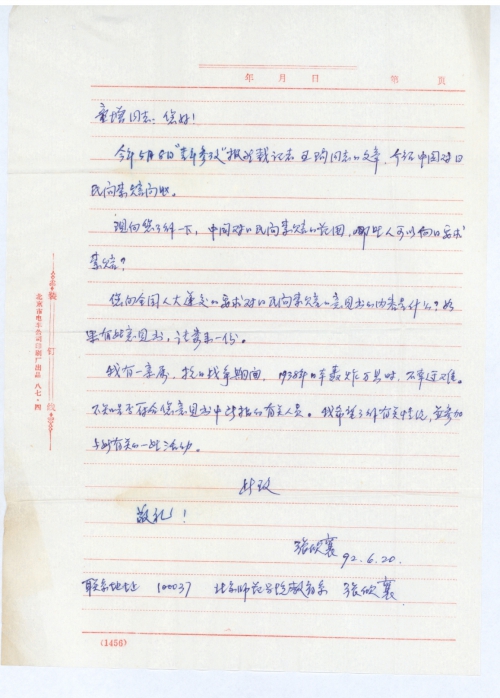 年 月 日 第 页
童增同志：您好！
今年5月6日"青年参考"报刊载记者王 同志的文章，介绍中国对日
民间索赔问题。
现向您了解一下，中国对日民间索赔的范围，哪些人可以向日要求
索赔？
您向全国人大递交的要求对日民间索赔的意见书的内容是什么？如
果有此意见书，请寄来一份。
我有一亲属，抗日战争期间，1938年日军轰炸 时，不幸遇难。
不知是否符合您意见书中所指的有关人员。我希望了解有关情况，并参加
与此有关的一些活动。
此致
敬礼！
张欣襄
92.6.20.
联系地址 100037 北京师范学院教育系 张欣襄
装订线
北京市电车公司印刷厂出品 八七·四
(1456)